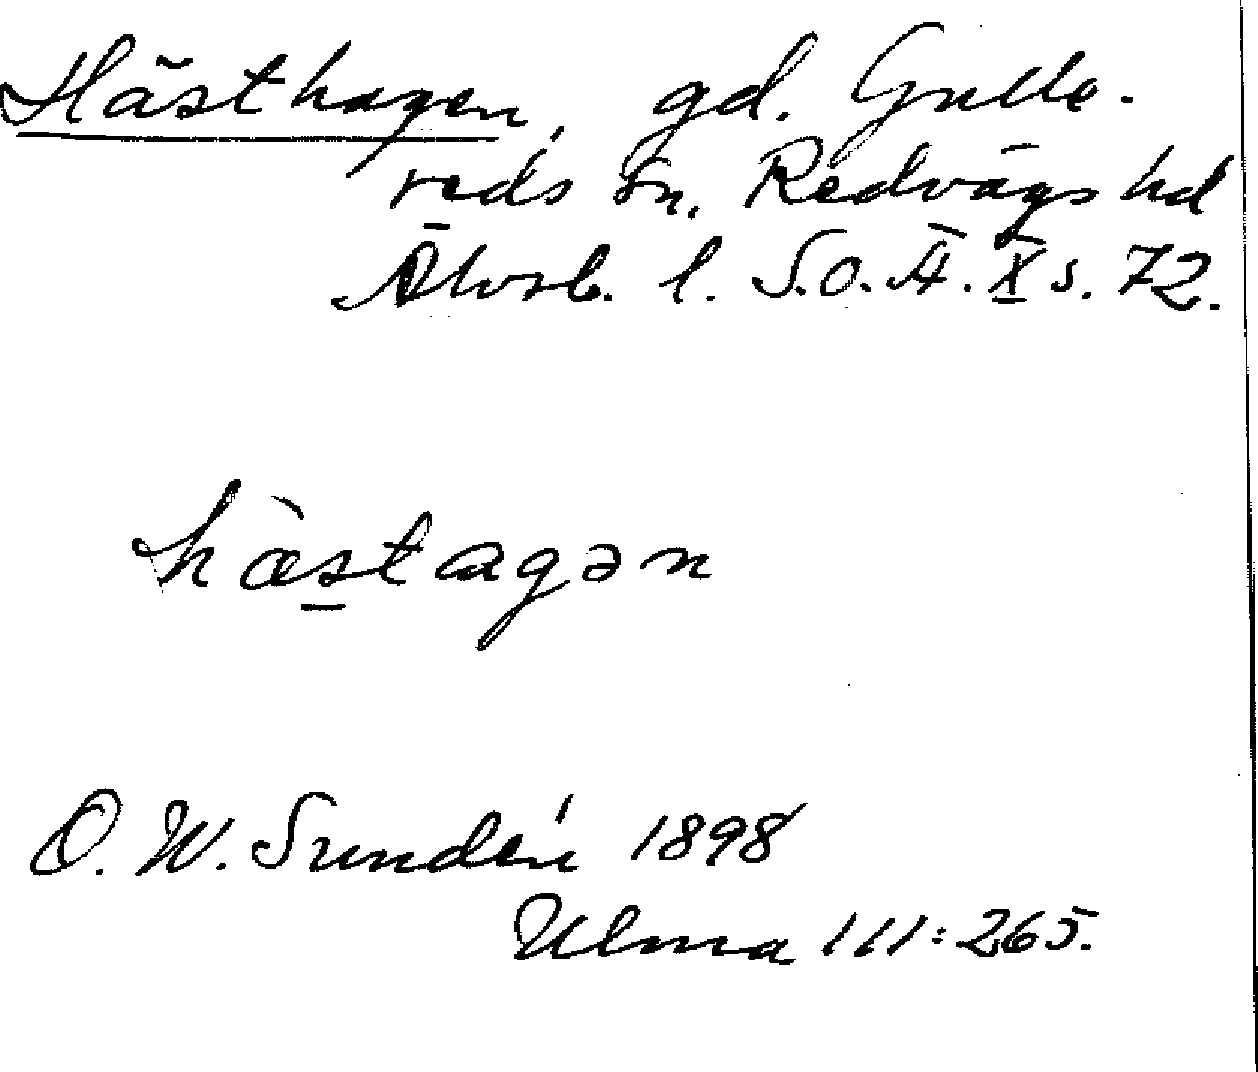 Hästhagen, gd. Gulle-
reds sn. Redvägs hd
Älvsb. l. S.O.Ä. X s. 72.
hæ̀stagən
O. W. Sundén 1898
Ulma 111:265.